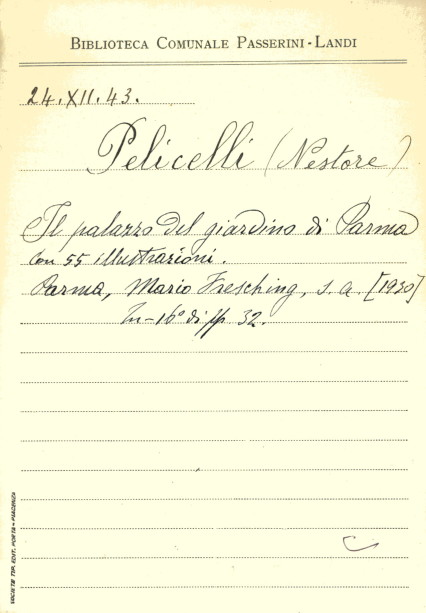 BIBLIOTECA COMUNALE PASSERINI-LANDI
24.XII.43.
Pelicelli (Nestore)
Il palazzo del giardino di Parma
con 55 illustrazioni.
Parma, Mario Fresching, s. a. [1930]
In-16° di pp. 32.
SOCIETÀ TIP. EDIT. PORTA - PIACENZA